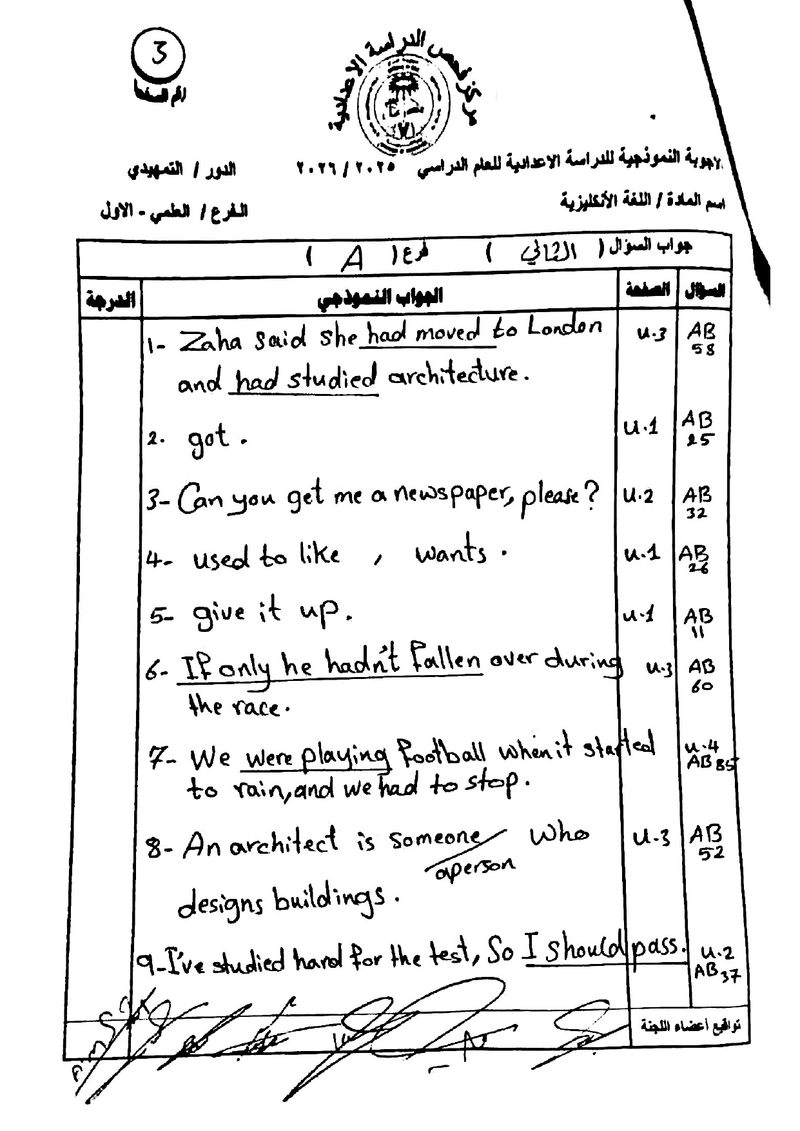 3
رقم الصفحة
مركز فحص الدراسة الاعدادية
لاجوبة النموذجية للدراسة الاعدادية للعام الدراسي ٢٠٢٥ / ٢٠٢٦
الدور / التمهيدي
اسم المادة / اللغة الأنكليزية
الفرع / العلمي - الاول
جواب السؤال ( الثاني ) فرع ( A )
السؤال الصفحة الجواب النموذجي الدرجة
1- Zaha said she had moved to London u.3 AB 58
and had studied architecture.
2. got. u.1 AB 25
3- Can you get me a newspaper, please? u.2 AB 32
4- used to like , wants. u.1 AB 26
5- give it up. u.1 AB 11
6- If only he hadn't fallen over during u.3 AB 60
the race.
7- We were playing football when it started u.4 AB 85
to rain, and we had to stop.
8- An architect is someone / a person who u.3 AB 52
designs buildings.
9- I've studied hard for the test, So I should pass. u.2 AB 37
تواقيع أعضاء اللجنة